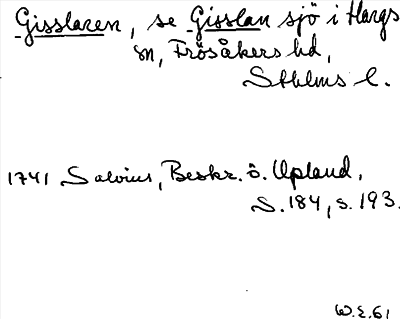 Gisslaren, se Gisslan sjö i Hargs
sn, Frösåkers hd,
Sthlms l.
1741 Salvius, Beskr. ö. Upland,
S. 184, s. 193.
W.E. 61